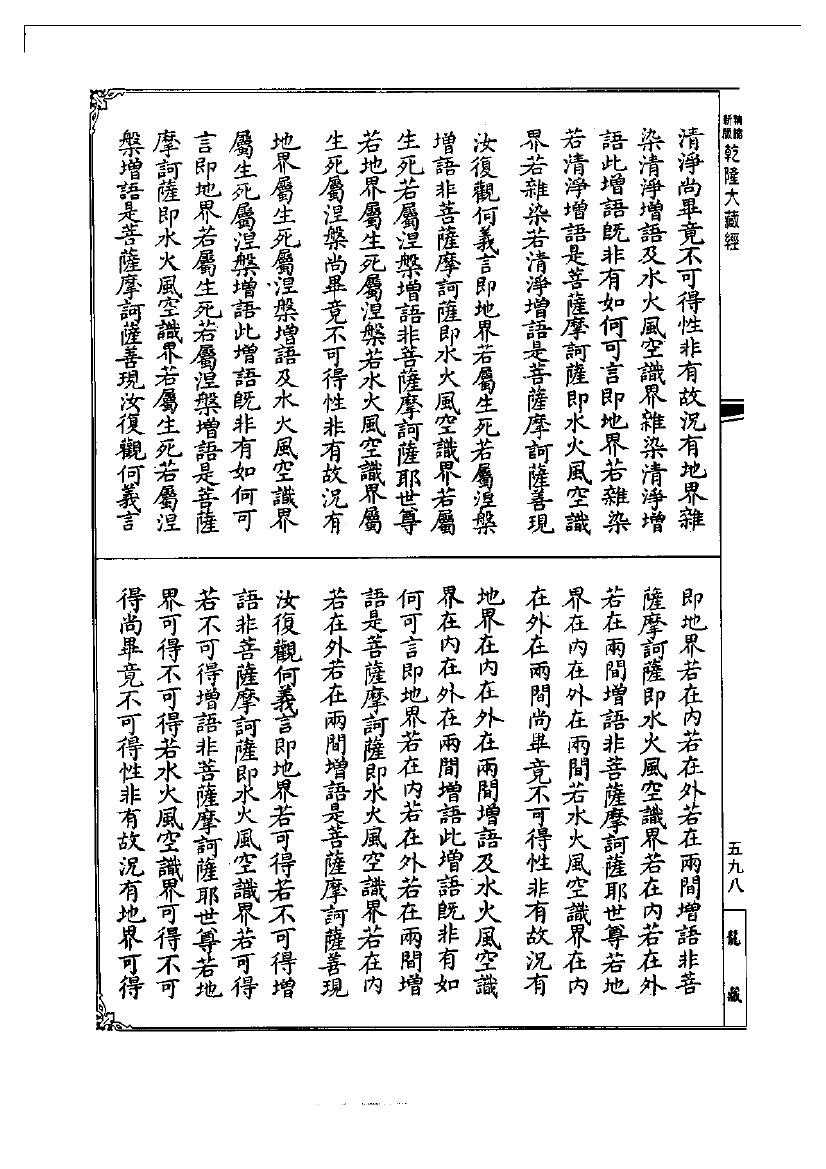 乾隆大藏經
清淨尚畢竟不可得性非有故況有地界雜
染清淨增語及水火風空識界雜染清淨增
語此增語既非有如何可言即地界若雜染
若清淨增語是菩薩摩訶薩即水火風空識
界若雜染若清淨增語是菩薩摩訶薩善現
汝復觀何義言即地界若屬生死若屬涅槃
增語非菩薩摩訶薩即水火風空識界若屬
生死若屬涅槃增語非菩薩摩訶薩耶世尊
若地界屬生死屬涅槃若水火風空識界屬
生死屬涅槃尚畢竟不可得性非有故況有
地界屬生死屬涅槃增語及水火風空識界
屬生死屬涅槃增語此增語既非有如何可
言即地界若屬生死若屬涅槃增語是菩薩
摩訶薩即水火風空識界若屬生死若屬涅
槃增語是菩薩摩訶薩善現汝復觀何義言
即地界若在內若在外若在兩間增語非菩
薩摩訶薩即水火風空識界若在內若在外
若在兩間增語非菩薩摩訶薩耶世尊若地
界在內在外在兩間若水火風空識界在內
在外在兩間尚畢竟不可得性非有故況有
地界在內在外在兩間增語及水火風空識
界在內在外在兩間增語此增語既非有如
何可言即地界若在內若在外若在兩間增
語是菩薩摩訶薩即水火風空識界若在內
若在外若在兩間增語是菩薩摩訶薩善現
汝復觀何義言即地界若可得若不可得增
語非菩薩摩訶薩即水火風空識界若可得
若不可得增語非菩薩摩訶薩耶世尊若地
界可得不可得若水火風空識界可得不可
得尚畢竟不可得性非有故況有地界可得
五九八
龍藏